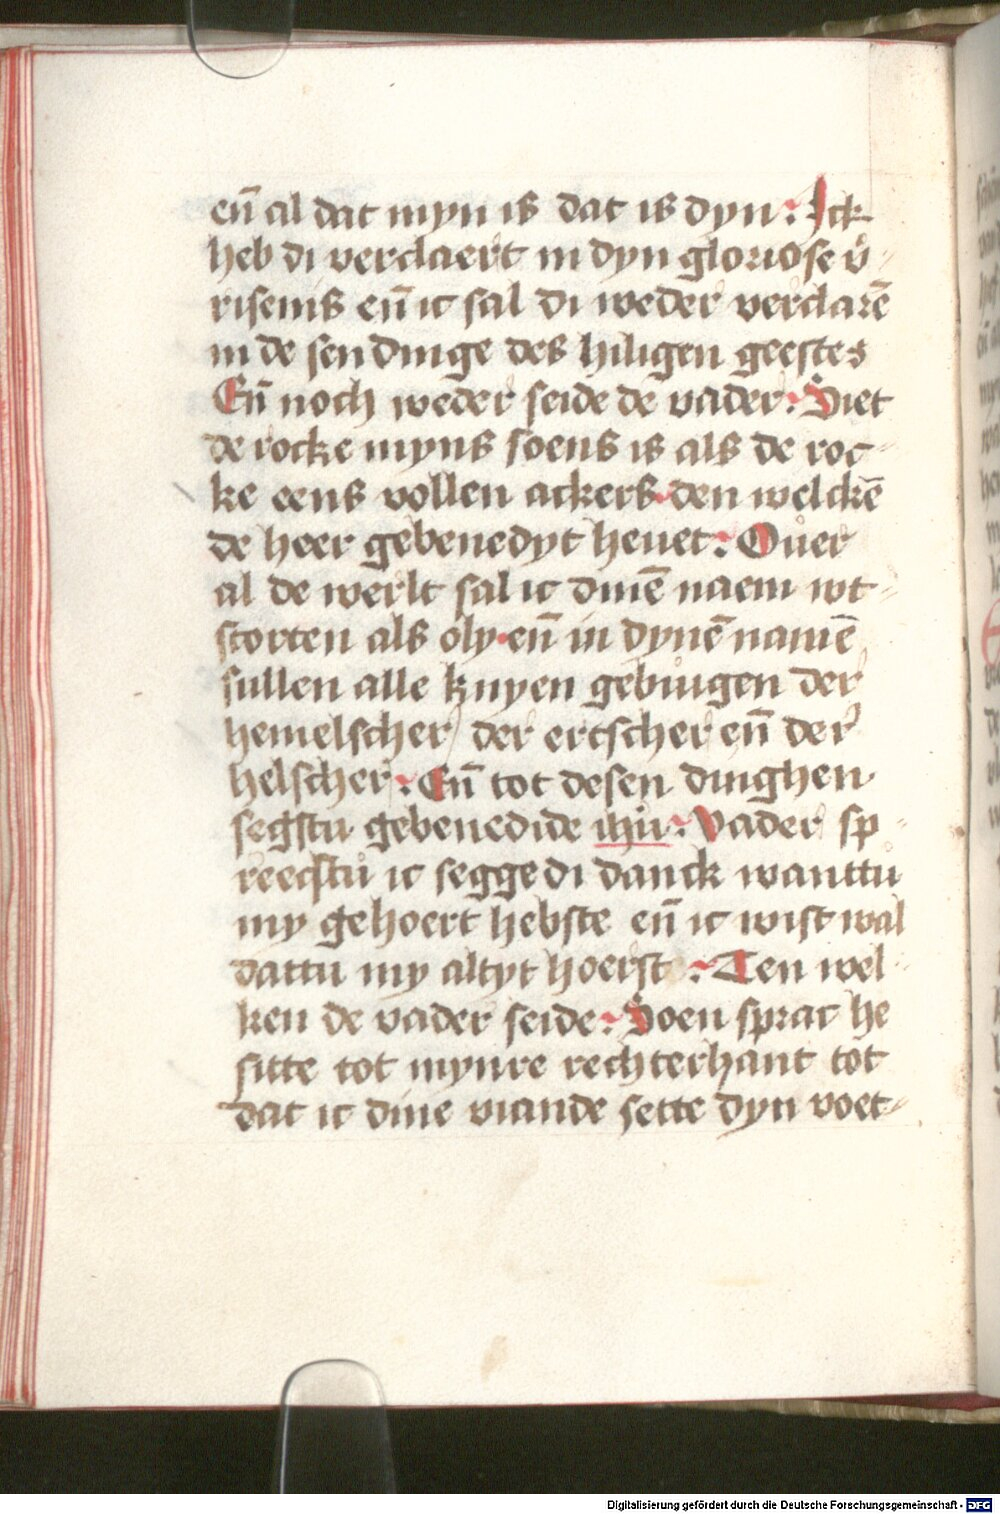 en̄ al dat myn is dat is dyn: Ick
heb di verclaert in dyn gloriose v̊-
risenis en̄ ic sal di weder verclarē
in de sendinge des hiligen geestes
En̄ noch weder seide de vader: Siet
de rocke myns soens is als de roc-
ke eens vollen ackers·den welckē
de heer gebenedyt heuet: Ouer
al de werlt sal ic dinē naem wt-
storten als oly·en̄ in dynē namē
sullen alle knyen gebuigen der
hemelscher/ der ertscher en̄ der
helscher: En̄ tot desen dinghen
segstu gebenedide ihu: Vader sp-
reecstu ic segge di danck wanttu
my gehoert hebste en̄ ic wist wal
dattu my altyt hoerst: Ten wel-
ken de vader seide: Soen sprac he
sitte tot mynre rechterhant tot
dat ic dine viande sette dyn voet-
Digitalisierung gefördert durch die Deutsche Forschungsgemeinschaft - DFG